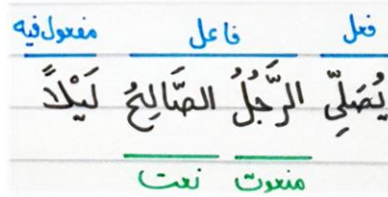 فعل فاعل مفعول فيه
يُصَلِّي الرَّجُلُ الصَّالِحُ لَيْلاً
منعوت نعت